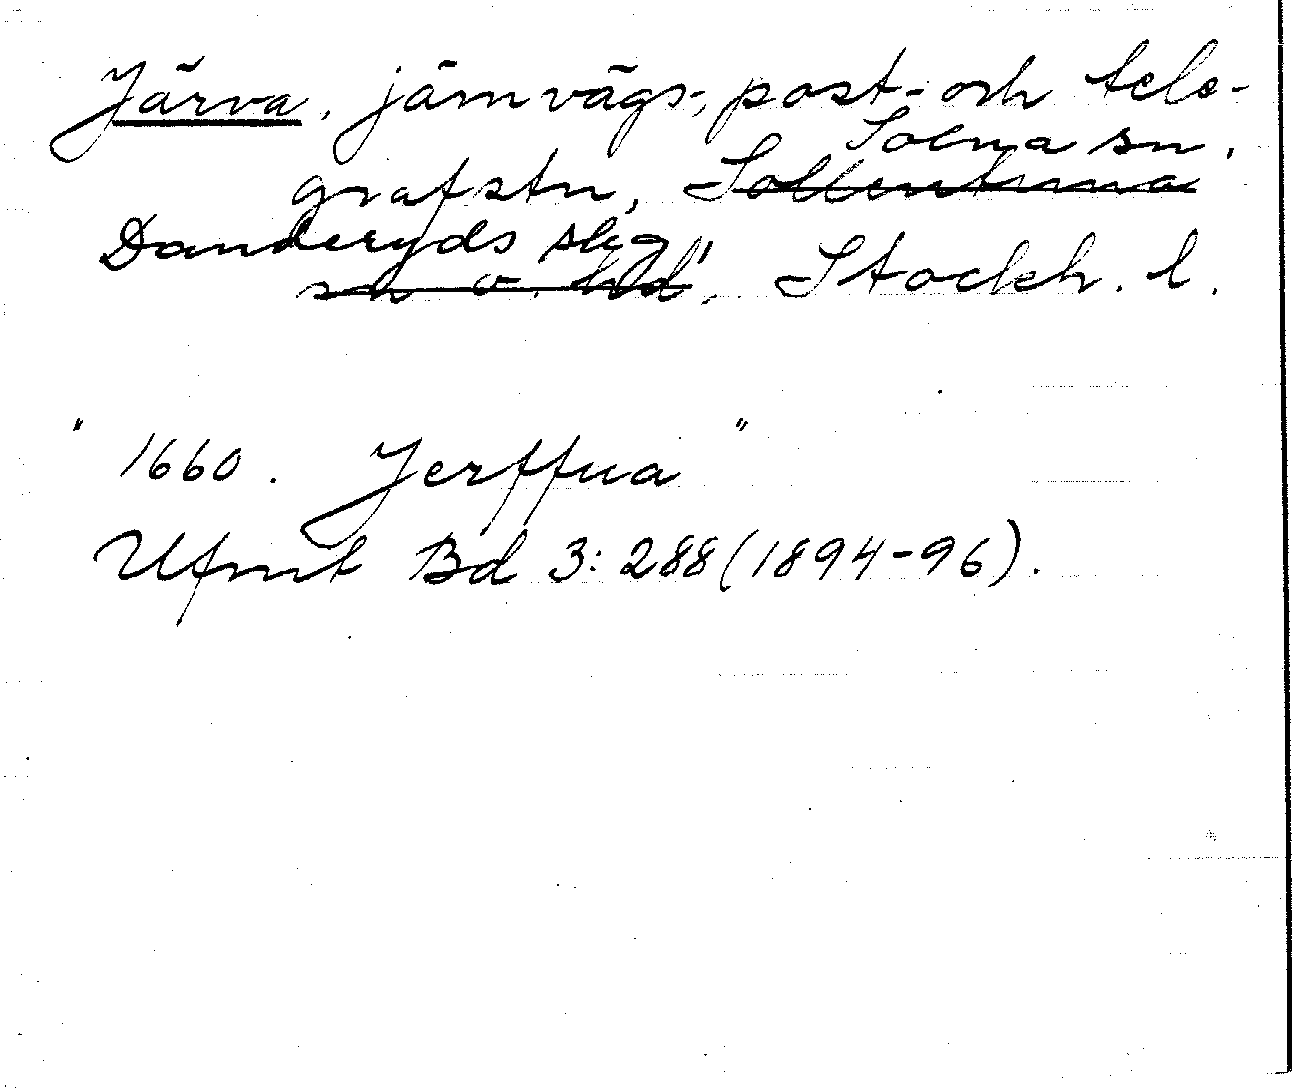 Järva, järnvägs-, post- och tele-
Solna sn.
grafstn, Sollentuna
Danderyds slg,
sn o. hd, Stockh. l.
" 1660. Jerffua "
Ufmt Bd 3: 288 (1894-96).